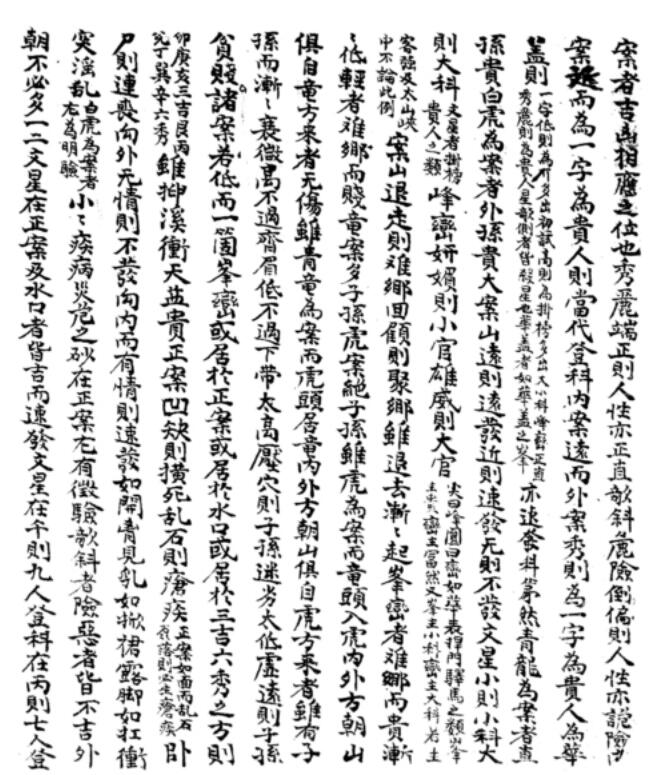 案者吉凶相應之位也秀麗端正則人性亦正直欹斜麁險倒偏則人性亦詭險內
案遠而為一字為貴人則當代登科內案遠而外案秀則為一字為貴人為華
盖則一字低則為才多出初試高則為掛榜多出大小科峰巒正直秀麗則為貴人星欹側者皆殺星也華盖者如華盖之峯亦速發科第然青龍為案者直
孫貴白虎為案者外孫貴大案山遠則遠發近則速發无則不發文星小則小科大
則大科文星者掛榜貴人之類峰巒妍媚則小官雄威則大官尖曰峰圓曰巒如華表捍門驛馬之類峯主巒主當然文峯主小科巒主大科若主
客強及太山峽中不論此例案山退走則难鄉回顧則聚鄉雖退去漸〻起峯巒者难鄉而貴漸
〻低輕者难鄉而賤竜案多子孫虎案絶子孫雖虎為案而竜頭入虎內外方朝山
俱自竜方來者无傷雖青竜為案而虎頭居竜內外方朝山俱自虎方來者雖有子
孫而漸〻衰微高不過齊眉低不過下帶太高壓穴則子孫迷劣太低虛遠則子孫
貧賤諸案若低而一箇峯巒或居於正案或居於水口或居於三吉六秀之方則
卯庚亥三吉艮丙兌丁巽辛六秀雖抑溪衝天益貴正案凹缺則橫死乱石則瘡疾正案如面而乱石剝落則必生瘡疾卧
尸則連喪向外无情則不發向內而有情則速發如開青見乳如掀裙露脚如扛衝
突淫乱白虎為案者尤為明驗小〻疾病災危之砂在正案尤有徵驗欹斜者險惡者皆不吉外
朝不必多一二文星在正案及水口者皆吉而速發文星在午則九人登科在丙則七人登